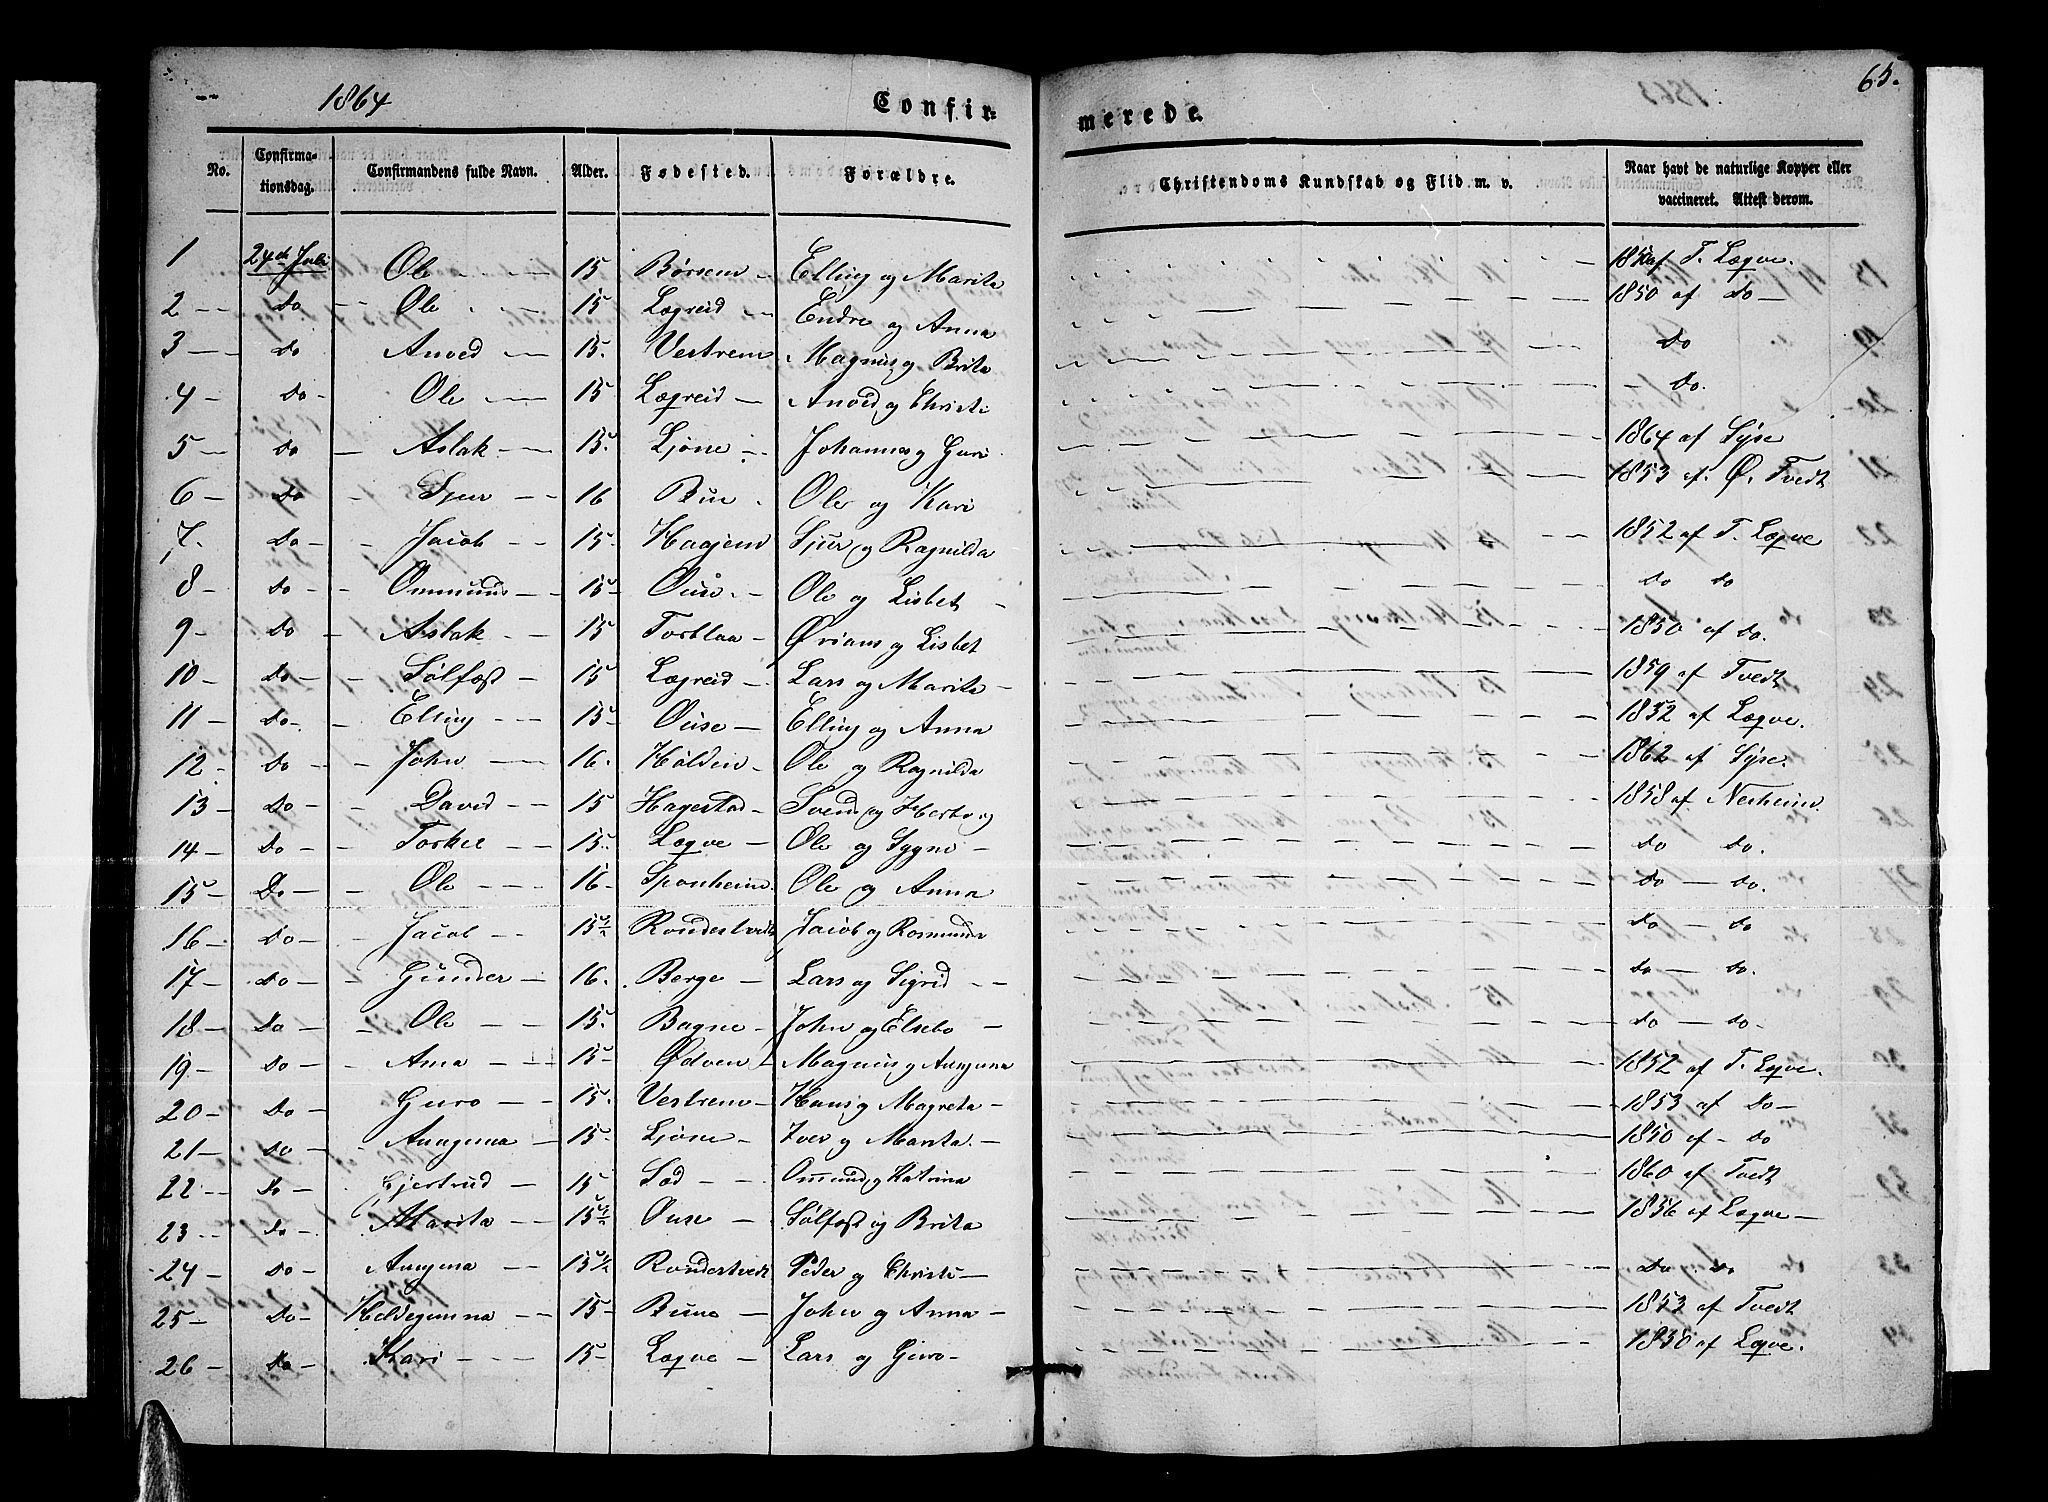 1864 Confir- merede. 65.
No. Confirma-tionsdag. Confirmandens fulde Navn. Alder. Fødested. Forældre. Christendoms Kundskab og Flid m. v. Naar havt de naturlige Kopper eller vaccineret. Attest derom.
1 24de Juli Ole 15 Børsem Elling og Marita af T. Lægve.
2 Do Ole 15 Lægreid Endre og Anna 1850 af Do
3 Do Anved 15. Vestrem Magnus og Brita Do
4 Do Ole 15 Lægreid Anved og Christi Do.
5 Do Aslak 15. Ljøne Johannes og Guri 1864 af Syse
6 Do Sjur 16 Bue Ole og Kari 1853 af Ø. Tvedt
7. Do Jacob 15. Haajem Sjur og Ragnilda 1852 af T. Lægve
8 Do Ommund 15 Ouse Ole og Lisbet Do Do
9 Do Aslak 15 Torblaa Ørians og Lisbet 1850 af Do.
10 Do Sølfæst 15 Lægreid Lars og Marita 1859 af Tvedt
11 Do Elling 15 Ouse Elling og Anna 1852 af Lægve.
12 Do John 16. Holden Ole og Ragnilda 1862 af Syse.
13 Do David 15 Hagestad Svend og Herborg 1858 af Nesheim.
14 Do Torkel 15. Lægve Ole og Sygne Do Do.
15 Do Ole 16 Sponheim Ole og Anna Do Do.
16 Do Jacob 15 1/2 Rondestvedt Jacob og Rosmunda Do Do
17 Do Gunder 16. Berge Lars og Sigrid Do Do.
18 Do Ole 15. Bagne John og Elsebo Do Do
19 Do Anna 15 Ødven Magnus og Aungunna 1852 af T. Lægve.
20 Do Guro 15. Vestrem Hans og Magreta 1853 af Do
21 Do Aungunna 15. Ljøne Iver og Marita. 1850 af Do
22 Do Gjertrud 15 Sød Ommund og Katrina 1860 af Tvedt
23 Do Marita 15 1/2 Ouse Sølfæst og Brita 1856 af Lægve
24 Do Aungunna 15 1/2 Rondestvedt Peder og Christi Do Do
25 Do Heldegunna 15 Buno John og Anna 1853 af Tvedt
26 Do Kari 15 Lægve Lars og Guro 1850 af Lægve.